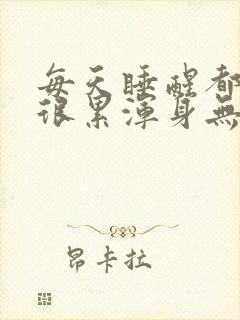 每天睡醒都
很累渾身無
昂卡拉